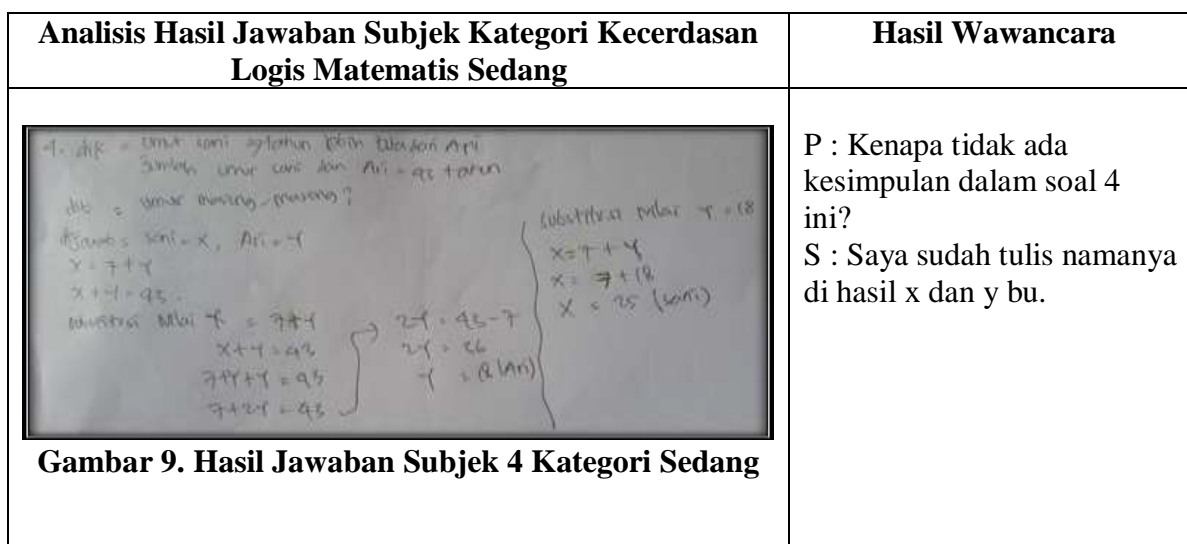 Analisis Hasil Jawaban Subjek Kategori Kecerdasan
Logis Matematis Sedang
Hasil Wawancara
4. dik = umur sani 7 tahun lebih tua dari Ari
Jumlah umur sani dan Ari = 43 tahun
dit = umur masing-masing?
Jawab = sani = x, Ari = Y
X = 7 + Y
X + Y = 43
substitusi Nilai X = 7+Y
X + Y = 43
7+Y+Y = 43
7+2Y = 43
2Y = 43-7
2Y = 36
Y = 18 (Ari)
substitusi Nilai Y = 18
X = 7 + Y
X = 7 + 18
X = 25 (sani)
Gambar 9. Hasil Jawaban Subjek 4 Kategori Sedang
P : Kenapa tidak ada
kesimpulan dalam soal 4
ini?
S : Saya sudah tulis namanya
di hasil x dan y bu.